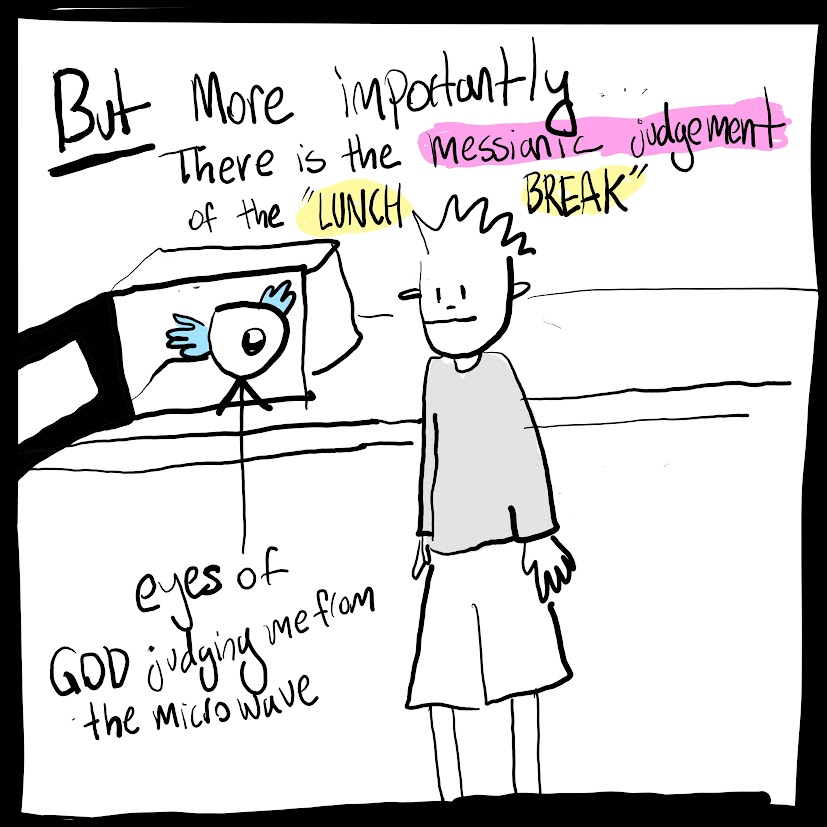 But More importantly....
There is the messianic judgement
of the "LUNCH BREAK"
eyes of
GOD judging me from
the microwave